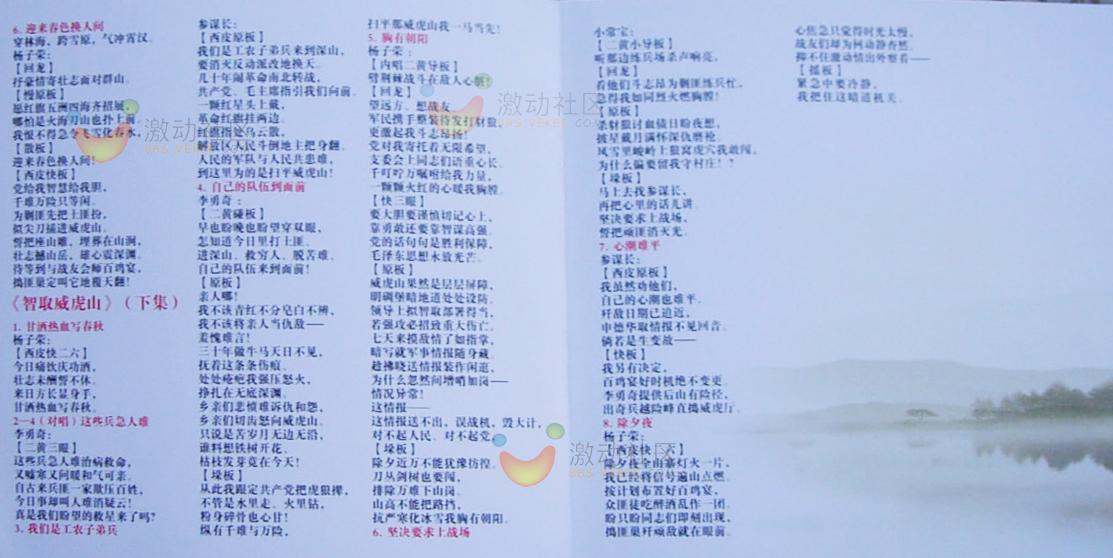 6. 迎来春色换人间
穿林海，跨雪原，气冲霄汉。
杨子荣：
【回龙】
抒豪情寄壮志面对群山。
【慢原板】
愿红旗五洲四海齐招展，
哪怕是火海刀山也扑上前。
我恨不得急令飞雪化春水，
【散板】
迎来春色换人间！
【西皮快板】
党给我智慧给我胆，
千难万险只等闲。
为剿匪先把土匪扮，
似尖刀插进威虎山。
誓把座山雕，埋葬在山涧，
壮志撼山岳，雄心震深渊。
待等到与战友会师百鸡宴，
捣匪巢定叫它地覆天翻！
《智取威虎山》（下集）
1. 甘洒热血写春秋
杨子荣：
【西皮快二六】
今日痛饮庆功酒，
壮志未酬誓不休。
来日方长显身手，
甘洒热血写春秋。
2—4（对唱）这些兵急人难
李勇奇：
【二黄三眼】
这些兵急人难治病救命，
又嘘寒又问暖和气可亲。
自古来兵匪一家欺压百姓，
今日事却叫人难消疑云！
真是我们盼望的救星来了吗？
3. 我们是工农子弟兵
参谋长：
【西皮原板】
我们是工农子弟兵来到深山，
要消灭反动派改地换天。
几十年闹革命南北转战，
共产党、毛主席指引我们向前。
一颗红星头上戴，
革命红旗挂两边。
红旗指处乌云散，
解放区人民斗倒地主把身翻。
人民的军队与人民共患难，
到这里为的是扫平威虎山！
4. 自己的队伍到面前
李勇奇：
【二黄碰板】
早也盼晚也盼望穿双眼，
怎知道今日里打土匪。
进深山、救穷人、脱苦难，
自己的队伍来到面前！
【原板】
亲人哪！
我不该青红不分皂白不辨，
我不该将亲人当仇敌——
羞愧难言！
三十年做牛马天日不见，
抚着这条条伤痕。
处处疮疤我强压怒火，
挣扎在无底深渊。
乡亲们悲愤难诉仇和怨，
乡亲们切齿怒向威虎山。
只说是苦岁月无边无沿，
谁料想铁树开花。
枯枝发芽竟在今天！
【垛板】
从此我跟定共产党把虎狼撵，
不管是水里走、火里钻，
粉身碎骨也心甘！
纵有千难与万险，
扫平那威虎山我一马当先！
5. 胸有朝阳
杨子荣：
【内唱二黄导板】
劈荆棘战斗在敌人心脏！
【回龙】
望远方、想战友
军民携手整装待发打豺狼，
更激起我斗志昂扬！
党对我寄托着无限希望，
支委会上同志们语重心长。
千叮咛万嘱咐给我力量，
一颗颗火红的心暖我胸膛。
【快三眼】
要大胆要谨慎切记心上，
靠勇敢还要靠智谋高强。
党的话句句是胜利保障，
毛泽东思想永放光芒。
【原板】
威虎山果然是层层屏障，
明碉堡暗地道处处设防。
领导上拟智取部署得当，
若强攻必招致重大伤亡。
七天来摸敌情了如指掌，
暗写就军事情报随身藏。
趁拂晓送情报装作闲逛，
为什么忽然间增哨加岗——
情况异常！
这情报——
这情报送不出，误战机，毁大计，
对不起人民、对不起党。
【垛板】
除夕近万不能犹豫彷徨。
刀丛剑树也要闯，
排除万难下山岗。
山高不能把路挡，
抗严寒化冰雪我胸有朝阳。
6. 坚决要求上战场
小常宝：
【二黄小导板】
听那边练兵场杀声响亮，
【回龙】
看他们斗志昂为剿匪练兵忙，
急得我如同烈火燃胸膛！
【原板】
杀豺狼讨血债日盼夜想，
披星戴月满怀深仇磨枪。
风雪里峻岭上狼窝虎穴我敢闯，
为什么偏要留我守村庄！？
【垛板】
马上去找参谋长，
再把心里的话儿讲。
坚决要求上战场，
誓把顽匪消灭光。
7. 心潮难平
参谋长：
【西皮原板】
我虽然劝他们，
自己的心潮也难平。
歼敌日期已迫近，
申德华取情报不见回音。
倘若是生变故——
【快板】
我另有决定，
百鸡宴好时机绝不变更。
李勇奇提供后山有险径，
出奇兵越险峰直捣威虎厅。
8. 除夕夜
杨子荣：
【西皮快二六】
除夕夜全山寨灯火一片，
我已经将信号遍山点燃。
按计划布置好百鸡宴，
众匪徒吃醉酒乱作一团。
盼只盼同志们即刻出现，
捣匪巢歼顽敌就在眼前。
心焦急只觉得时光太慢，
战友们却为何动静杳然。
抑不住激动情出外察看——
【摇板】
紧急中要冷静，
我把住这暗道机关。
激动社区
BBS.VEKEE.COM
激动社区
BBS.VEKEE.COM
激动社区
BBS.VEKEE.COM